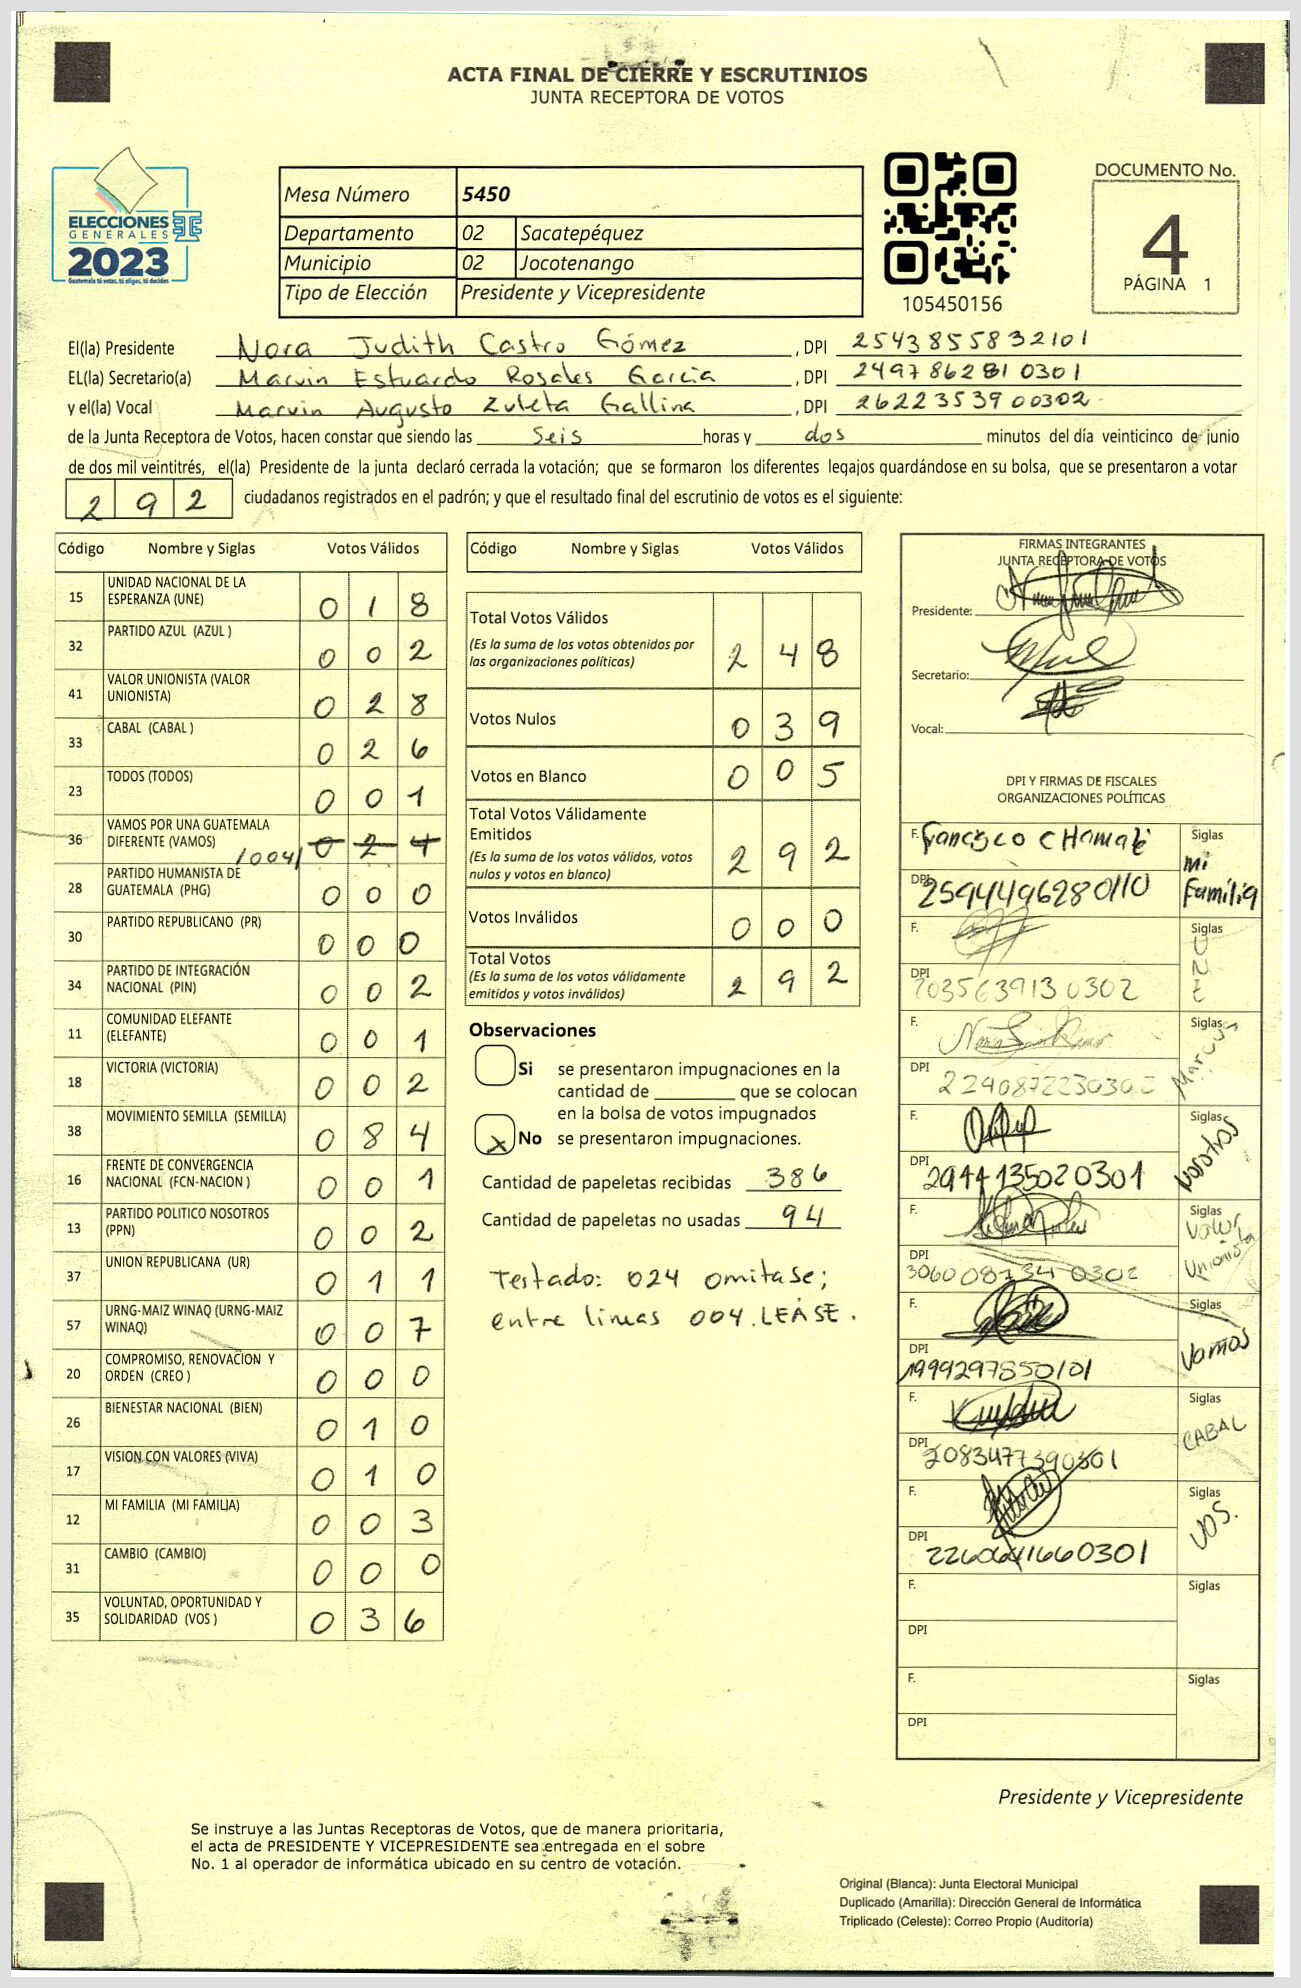 ACTA FINAL DE CIERRE Y ESCRUTINIOS
JUNTA RECEPTORA DE VOTOS
ELECCIONES
GENERALES
2023
Guatemala tú votas, tú eliges, tú decides
Mesa Número 5450
Departamento 02 Sacatepéquez
Municipio 02 Jocotenango
Tipo de Elección Presidente y Vicepresidente
105450156
DOCUMENTO No.
4
PÁGINA 1
El(la) Presidente Nora Judith Castro Gómez , DPI 2543855832101
EL(la) Secretario(a) Marvin Estuardo Rosales García , DPI 2497862810301
y el(la) Vocal Marvin Augusto Zuleta Gallina , DPI 2622353900302
de la Junta Receptora de Votos, hacen constar que siendo las seis horas y dos minutos del día veinticinco de junio
de dos mil veintitrés, el(la) Presidente de la junta declaró cerrada la votación; que se formaron los diferentes legajos guardándose en su bolsa, que se presentaron a votar
292 ciudadanos registrados en el padrón; y que el resultado final del escrutinio de votos es el siguiente:
Código Nombre y Siglas Votos Válidos
15 UNIDAD NACIONAL DE LA
ESPERANZA (UNE) 018
32 PARTIDO AZUL (AZUL ) 002
41 VALOR UNIONISTA (VALOR
UNIONISTA) 028
33 CABAL (CABAL ) 026
23 TODOS (TODOS) 001
36 VAMOS POR UNA GUATEMALA
DIFERENTE (VAMOS) /004/ 024
28 PARTIDO HUMANISTA DE
GUATEMALA (PHG) 000
30 PARTIDO REPUBLICANO (PR) 000
34 PARTIDO DE INTEGRACIÓN
NACIONAL (PIN) 002
11 COMUNIDAD ELEFANTE
(ELEFANTE) 001
18 VICTORIA (VICTORIA) 002
38 MOVIMIENTO SEMILLA (SEMILLA) 084
16 FRENTE DE CONVERGENCIA
NACIONAL (FCN-NACION ) 001
13 PARTIDO POLITICO NOSOTROS
(PPN) 002
37 UNION REPUBLICANA (UR) 011
57 URNG-MAIZ WINAQ (URNG-MAIZ
WINAQ) 007
20 COMPROMISO, RENOVACION Y
ORDEN (CREO ) 000
26 BIENESTAR NACIONAL (BIEN) 010
17 VISION CON VALORES (VIVA) 010
12 MI FAMILIA (MI FAMILIA) 003
31 CAMBIO (CAMBIO) 000
35 VOLUNTAD, OPORTUNIDAD Y
SOLIDARIDAD (VOS ) 036
Código Nombre y Siglas Votos Válidos
Total Votos Válidos
(Es la suma de los votos obtenidos por
las organizaciones políticas) 248
Votos Nulos 039
Votos en Blanco 005
Total Votos Válidamente
Emitidos
(Es la suma de los votos válidos, votos
nulos y votos en blanco) 292
Votos Inválidos 000
Total Votos
(Es la suma de los votos válidamente
emitidos y votos inválidos) 292
Observaciones
Si se presentaron impugnaciones en la
cantidad de ________ que se colocan
en la bolsa de votos impugnados
x No se presentaron impugnaciones.
Cantidad de papeletas recibidas 386
Cantidad de papeletas no usadas 94
Testado: 024 omitase;
entre lineas 004.LEASE.
FIRMAS INTEGRANTES
JUNTA RECEPTORA DE VOTOS
Presidente:
Secretario:
Vocal:
DPI Y FIRMAS DE FISCALES
ORGANIZACIONES POLÍTICAS
F. Francisco CHamalé Siglas
Mi
Familia
DPI 25944496280110
F. Siglas
UNE
DPI 7035639130302
F. Siglas
DPI
F. Siglas
Nosotros
DPI 2944135020301
F. Siglas
Valor
Unionista
DPI 3060087340302
F. Siglas
Vamos
DPI 1999297850101
F. Siglas
CABAL
DPI 2083477390301
F. Siglas
VOS.
DPI 2260641660301
F. Siglas
DPI
F. Siglas
DPI
Presidente y Vicepresidente
Se instruye a las Juntas Receptoras de Votos, que de manera prioritaria,
el acta de PRESIDENTE Y VICEPRESIDENTE sea entregada en el sobre
No. 1 al operador de informática ubicado en su centro de votación.
Original (Blanca): Junta Electoral Municipal
Duplicado (Amarilla): Dirección General de Informática
Triplicado (Celeste): Correo Propio (Auditoría)